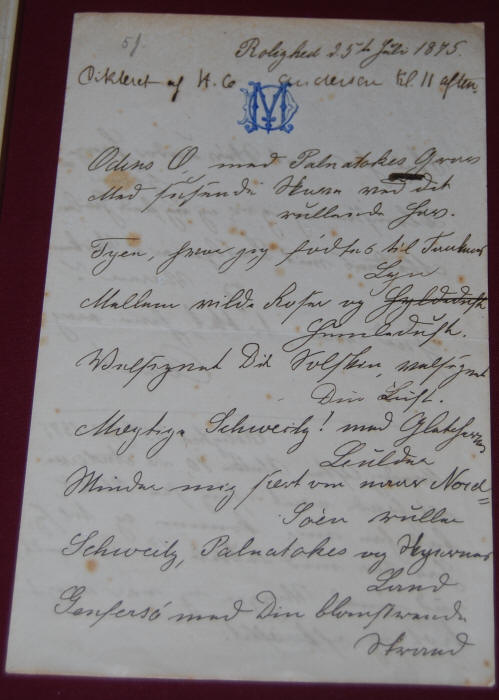 51.
Rolighed 25de Juli 1875
Dikteret af H. C. Andersen Kl. 11 aften.
MD
Odins Ø, med Palnatokes Grav
Med susende Skove ved det
rullende Hav.
Fyen, hvor jeg fødtes til Tankens
Lyn
Mellem vilde Roser og Hyldeduft
Humleduft.
Velsignet Dit Solskin, velsignet
Din Luft.
Mægtige Schweitz! med Gletschernes
Minder mig svært om naar Nord=
Søen ruller
Schweitz, Palnatokes og Skyernes
Land
Genfersö med Din blomstrende
Strand